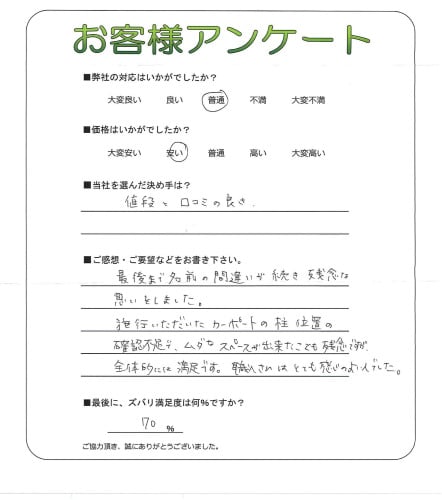 お客様アンケート
■弊社の対応はいかがでしたか？
大変良い 良い 普通 不満 大変不満
■価格はいかがでしたか？
大変安い 安い 普通 高い 大変高い
■当社を選んだ決め手は？
値段と口コミの良さ.
■ご感想・ご要望などをお書き下さい。
最後まで名前の間違いが続き残念な
思いをしました。
施行いただいたカーポートの柱位置の
確認不足で、ムダなスペースが出来たことも残念ですが
全体的には満足です。職人さんはとても感じのよい人でした。
■最後に、ズバリ満足度は何%ですか？
70 %
ご協力頂き、誠にありがとうございました。